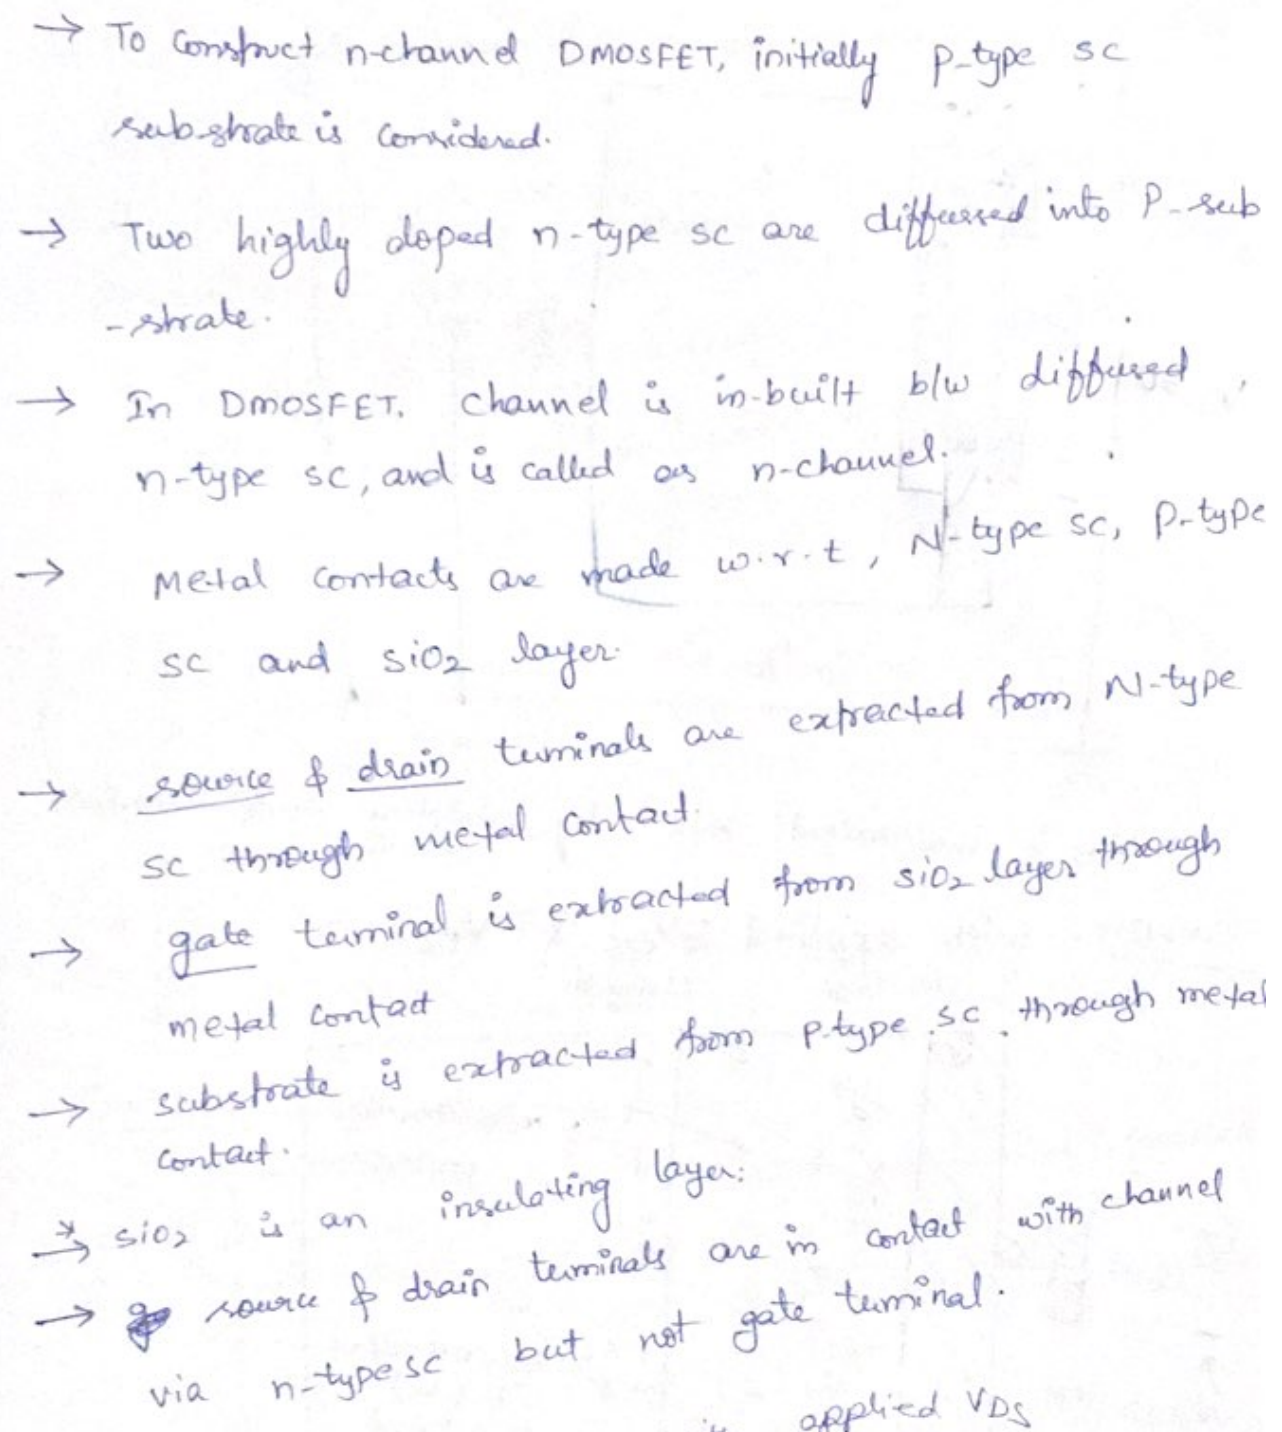 → To construct n-channel DMOSFET, initially p-type sc
substrate is considered.
→ Two highly doped n-type sc are diffussed into P-sub
-strate.
→ In DMOSFET, channel is in-built b/w diffused
n-type sc, and is called as n-channel.
→ Metal contacts are made w.r.t, N-type sc, P-type
sc and SiO2 layer.
→ source & drain terminals are extracted from N-type
sc through metal contact.
→ gate terminal is extracted from SiO2 layer through
metal contact
→ substrate is extracted from p-type sc through metal
contact.
*→ SiO2 is an insulating layer.
→ source & drain terminals are in contact with channel
via n-type sc but not gate terminal.
applied VDS